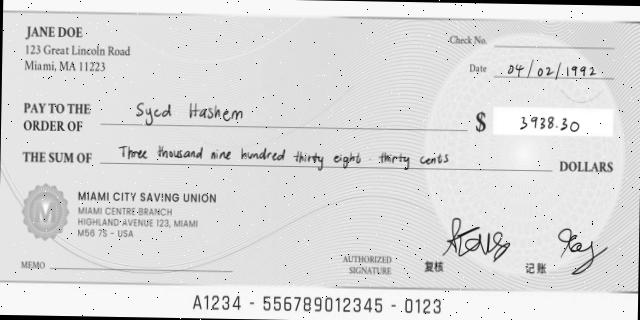 JANE DOE
123 Great Lincoln Road
Miami, MA 11223
Check No.
Date 04/02/1992
PAY TO THE
ORDER OF Syed Hashem $ 3938.30
THE SUM OF Three thousand nine hundred thirty eight thirty cents DOLLARS
M
MIAMI CITY SAVING UNION
MIAMI CENTRE-BRANCH
HIGHLAND AVENUE 123, MIAMI
M56 7S - USA
MEMO
AUTHORIZED
SIGNATURE
复核 记账
A1234 - 556789012345 - 0123